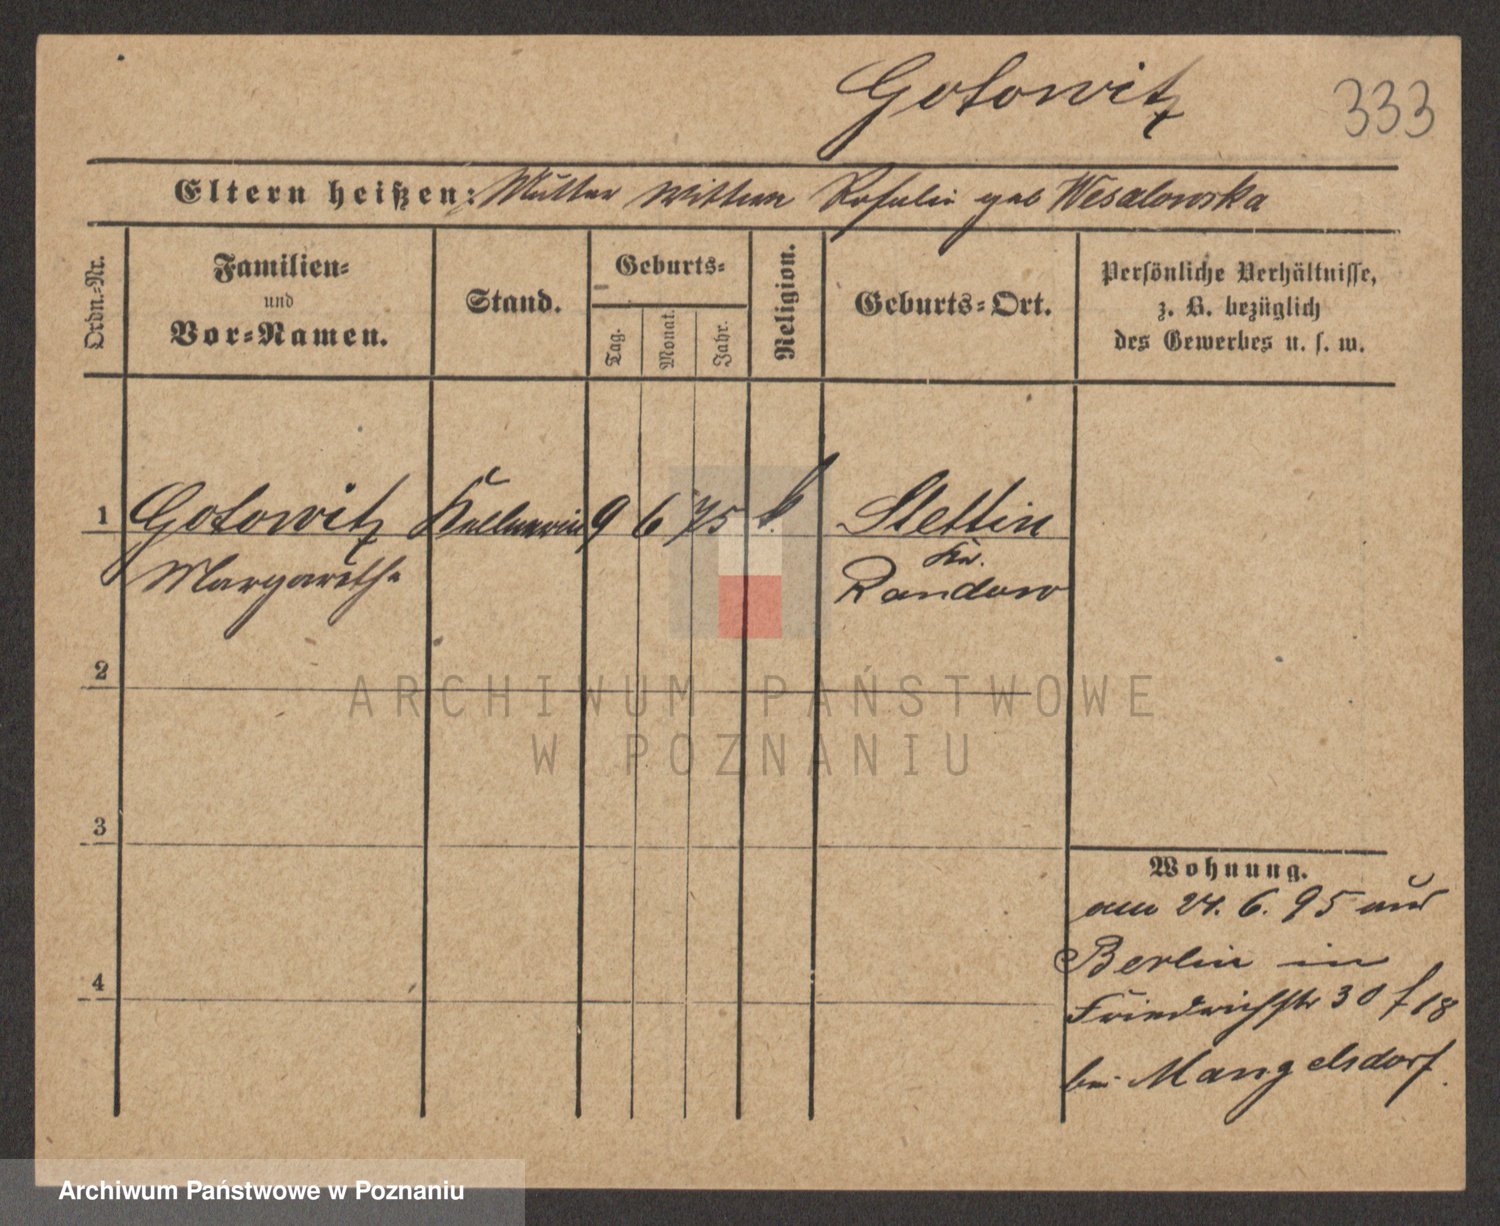 Gotowitz 333
Eltern heißen: Mutter Wittwe Rosalie geb Wesalowska
Ordn.-Nr.
Familien-
und
Vor-Namen.
Stand.
Geburts-
Tag.
Monat.
Jahr.
Religion.
Geburts-Ort.
Persönliche Verhältnisse,
z. B. bezüglich
des Gewerbes u. s. w.
1 Gotowitz Kellnerin 9 6 75 k. Stettin
Margareth Kr.
Randow
2
ARCHIWUM PAŃSTWOWE
W POZNANIU
3
Wohnung.
am 24. 6. 95 aus
Berlin in
4
Friedrichstr 30 / 18
bei Mangelsdorf.
Archiwum Państwowe w Poznaniu